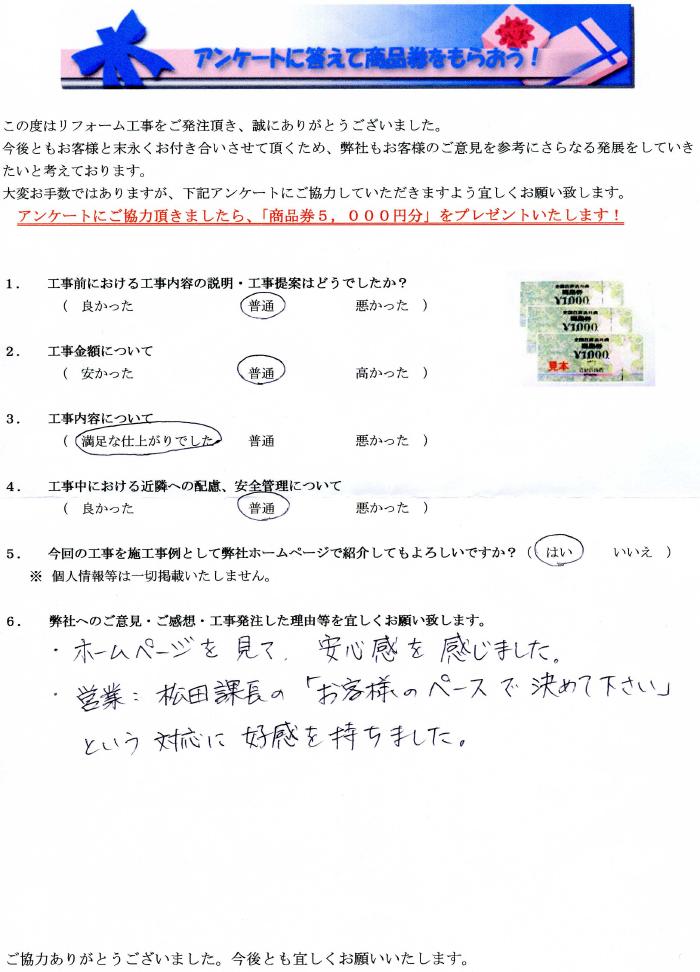 アンケートに答えて商品券をもらおう！
この度はリフォーム工事をご発注頂き、誠にありがとうございました。
今後ともお客様と末永くお付き合いさせて頂くため、弊社もお客様のご意見を参考にさらなる発展をしていき
たいと考えております。
大変お手数ではありますが、下記アンケートにご協力していただきますよう宜しくお願い致します。
アンケートにご協力頂きましたら、「商品券５，０００円分」をプレゼントいたします！
１． 工事前における工事内容の説明・工事提案はどうでしたか？
（ 良かった 普通 悪かった ）
２． 工事金額について
（ 安かった 普通 高かった ）
３． 工事内容について
（ 満足な仕上がりでした 普通 悪かった ）
４． 工事中における近隣への配慮、安全管理について
（ 良かった 普通 悪かった ）
５． 今回の工事を施工事例として弊社ホームページで紹介してもよろしいですか？（ はい いいえ ）
※ 個人情報等は一切掲載いたしません。
６． 弊社へのご意見・ご感想・工事発注した理由等を宜しくお願い致します。
・ホームページを見て、安心感を感じました。
・営業：松田課長の「お客様のペースで決めて下さい」
という対応に好感を持ちました。
ご協力ありがとうございました。今後とも宜しくお願いいたします。
商品券
¥1,000
商品券
¥1,000
商品券
¥1,000
見本